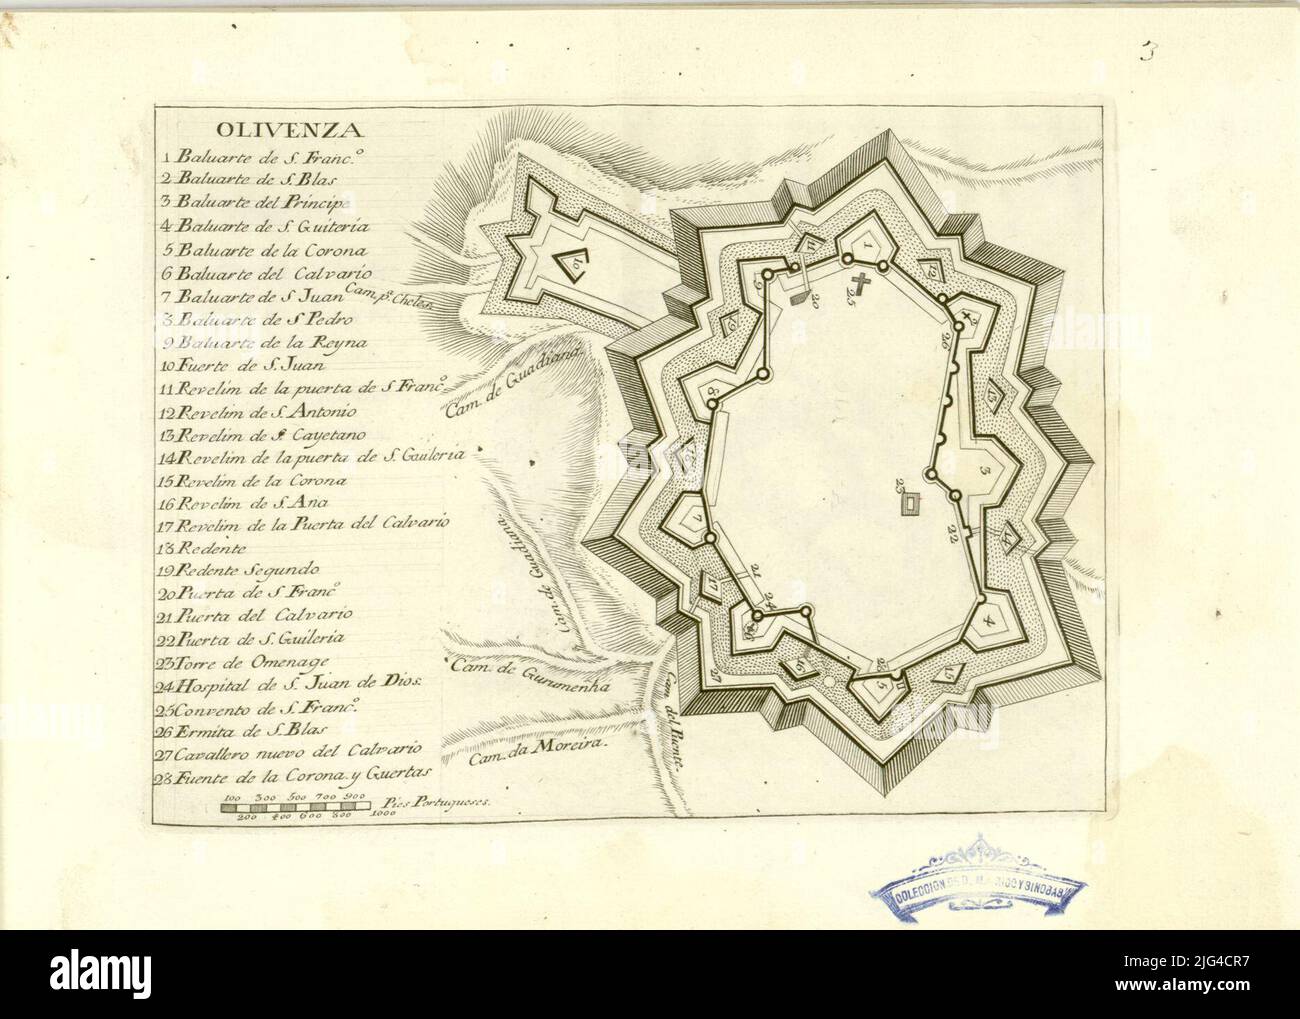 3
OLIVENZA
1 Baluarte de S. Franc.º
2 Baluarte de S. Blas
3 Baluarte del Principe
4 Baluarte de S. Guiteria
5 Baluarte de la Corona
6 Baluarte del Calvario
7 Baluarte de S. Juan
8 Baluarte de S Pedro
9 Baluarte de la Reyna
10 Fuerte de S. Juan
11 Revelim de la puerta de S. Franc.º
12 Revelim de S. Antonio
13 Revelim de S. Cayetano
14 Revelim de la puerta de S. Guileria
15 Revelim de la Corona
16 Revelim de S. Ana
17 Revelim de la Puerta del Calvario
18 Redente
19 Redente Segundo
20 Puerta de S. Francº
21 Puerta del Calvario
22 Puerta de S. Guileria
23 Torre de Omenage
24 Hospital de S. Juan de Dios.
25 Convento de S. Franc.º
26 Ermita de S. Blas
27 Cavallero nuevo del Calvario
28 Fuente de la Corona y Guertas
100 300 500 700 900
200 400 600 800 1000
Pies Portugueses.
Cam. pª Cheles.
Cam. de Guadiana.
Cam de Guadiana
Cam. de Gurumenha
Cam. da Moreira.
Cam. del Puente.
10
11
1
12
9
20
25
2
26
13
8
3
23
7
22
14
21
17
24
4
6
16
5
15
27
COLECCION DE D.
RICO Y SINOBAS
alamy
alamy
Image ID: 2JG4CR7
www.alamy.com